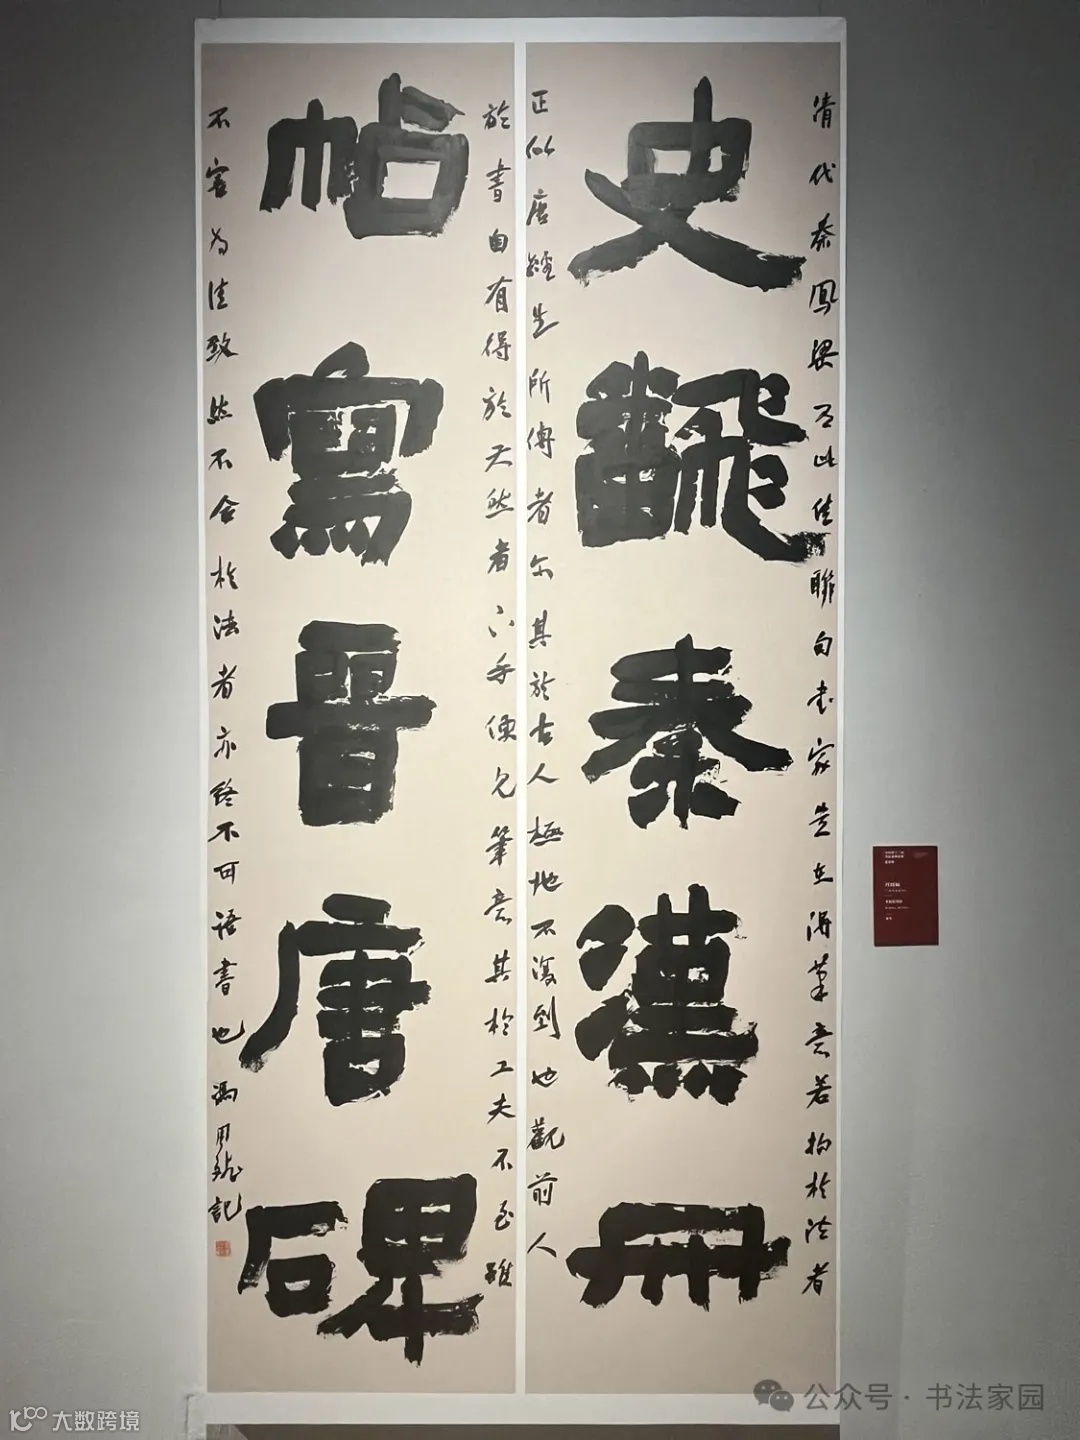 清代秦鳳梁有此佳聯句書家貴在得筆意若拘於法者
史翻秦漢冊
正似唐經生所傳者尔其於古人極地不復到也觀前人
於書自有得於天然者下手便見筆意其於工夫不至雖
帖寫晉唐碑
不害為佳致然不合於法者亦終不可語書也馮用龍記
公众号·书法家园
大数跨境